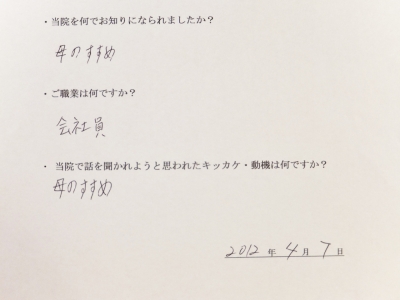 ・当院を何でお知りになられましたか？
母のすすめ
・ご職業は何ですか？
会社員
・ 当院で話を聞かれようと思われたキッカケ・動機は何ですか？
母のすすめ
2012 年 4 月 7 日